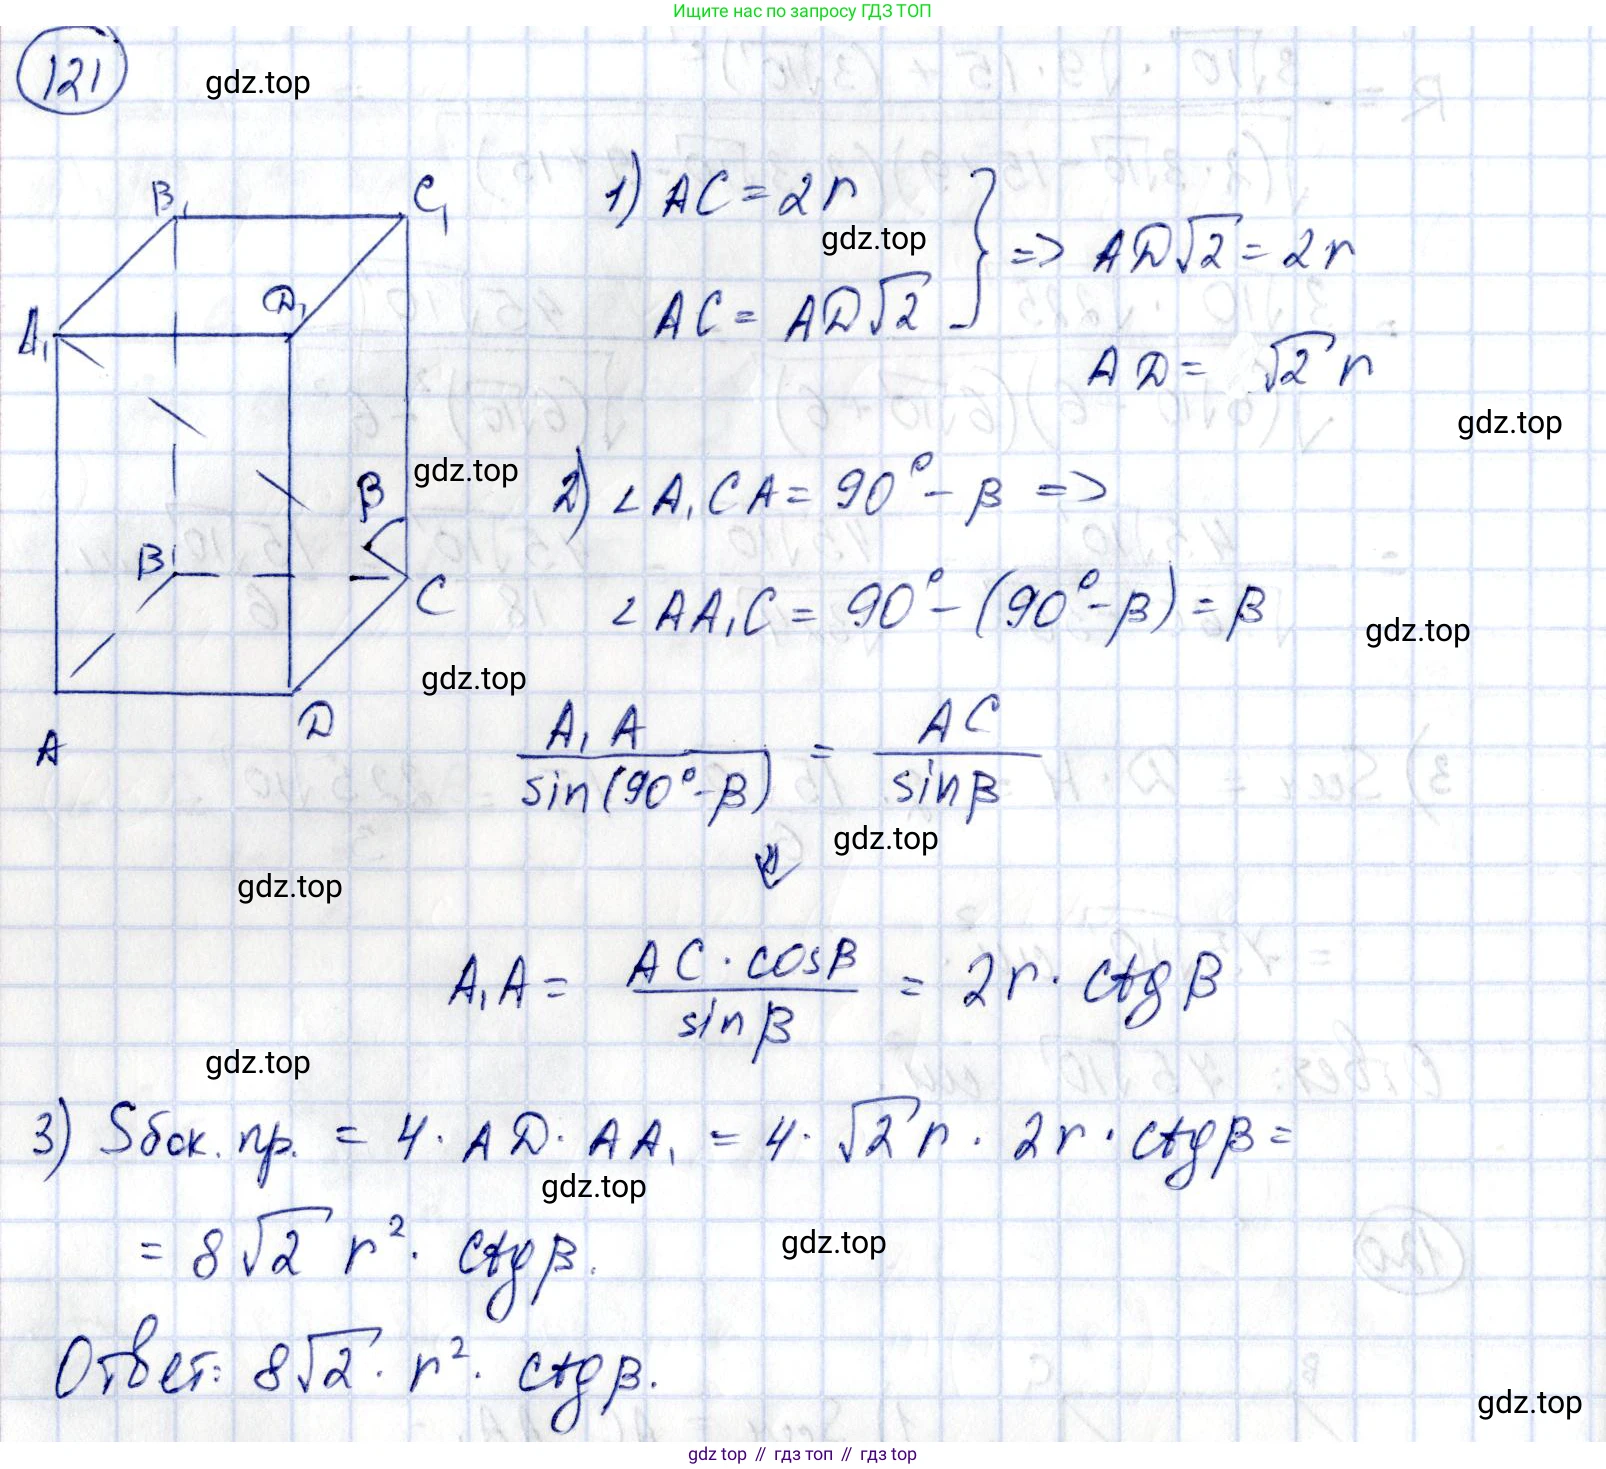 Ищите нас по запросу ГДЗ ТОП
121
gdz.top
B₁
C₁
A₁
D₁
β
B
C
A
D
1) AC = 2r
gdz.top
AC = AD√2
=> AD√2 = 2r
AD = √2 r
gdz.top
gdz.top
2) ∠A₁CA = 90° - β =>
∠AA₁C = 90° - (90° - β) = β
gdz.top
gdz.top
A₁A / sin(90° - β) = AC / sin β
gdz.top
gdz.top
A₁A = AC · cos β / sin β = 2r · ctg β
gdz.top
3) Sбок. пр. = 4 · AD · AA₁ = 4 · √2 r · 2r · ctg β =
gdz.top
= 8√2 r² · ctg β.
gdz.top
Ответ: 8√2 · r² · ctg β.
gdz.top
gdz top // гдз топ // гдз top